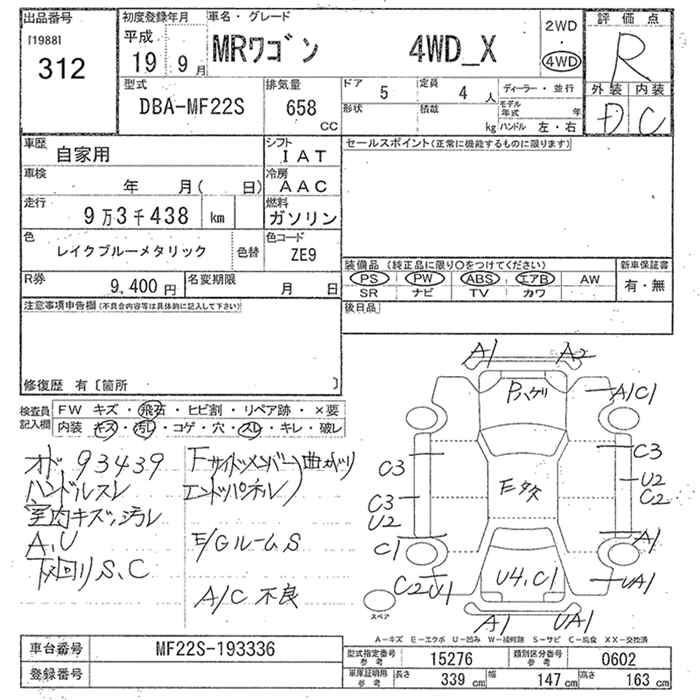 出品番号
[1988]
312
初度登録年月
平成
19 9月
車名・グレード
MRワゴン 4WD_X
2WD
・
4WD
評価点
R
外装 内装
D C
型式
DBA-MF22S
排気量
658
CC
ドア 5
定員 4 人
形状
積載 kg
ディーラー・並行
モデル年式 年
ハンドル 左・右
車歴
自家用
シフト
IAT
車検
年 月( 日)
冷房
AAC
走行
9万3千438 km
燃料
ガソリン
色
レイクブルーメタリック
色替
色コード
ZE9
R券
9,400円
名変期限
月 日
セールスポイント(正常に機能するものに限ります)
装備品(純正品に限り○をつけてください)
新車保証書
PS PW ABS エアB AW
SR ナビ TV カワ
有・無
後日品
注意事項申告欄(不具合内容等は具体的に記入して下さい)
修復歴 有〔箇所 〕
検査員記入欄
FW キズ・飛石・ヒビ割・リペア跡・×要
内装 キズ・汚レ・コゲ・穴・スレ・キレ・破レ
オド 93439
ハンドルスレ
室内キズ、汚レ
A、U
下回りS、C
Fサイドメンバー)曲がり
エンドパネル
E/Gルーム、S
A/C 不良
A1 A2
Pハゲリ
A1C1
C3
C3
U2
C1
C2U1
E多数
C3
U2
C2
A1
UA1
U4、C1
A1 UA1
スペア
A−キズ E−エクボ U−凹み W−補修跡 S−サビ C−腐食 XX−交換済
車台番号
MF22S-193336
登録番号
型式指定番号
参考
15276
類別区分番号
参考
0602
車庫証明用
参考
長さ 339 cm
幅 147 cm
高さ 163 cm